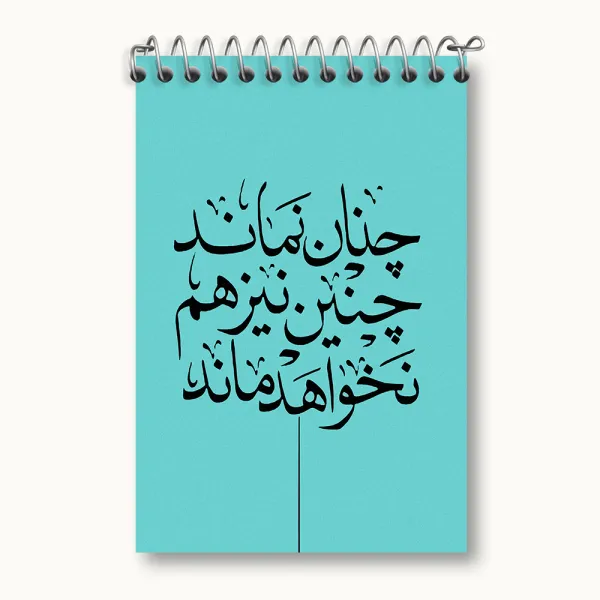 چنان نماند
چنین نیز هم
نَخواهَد ماند